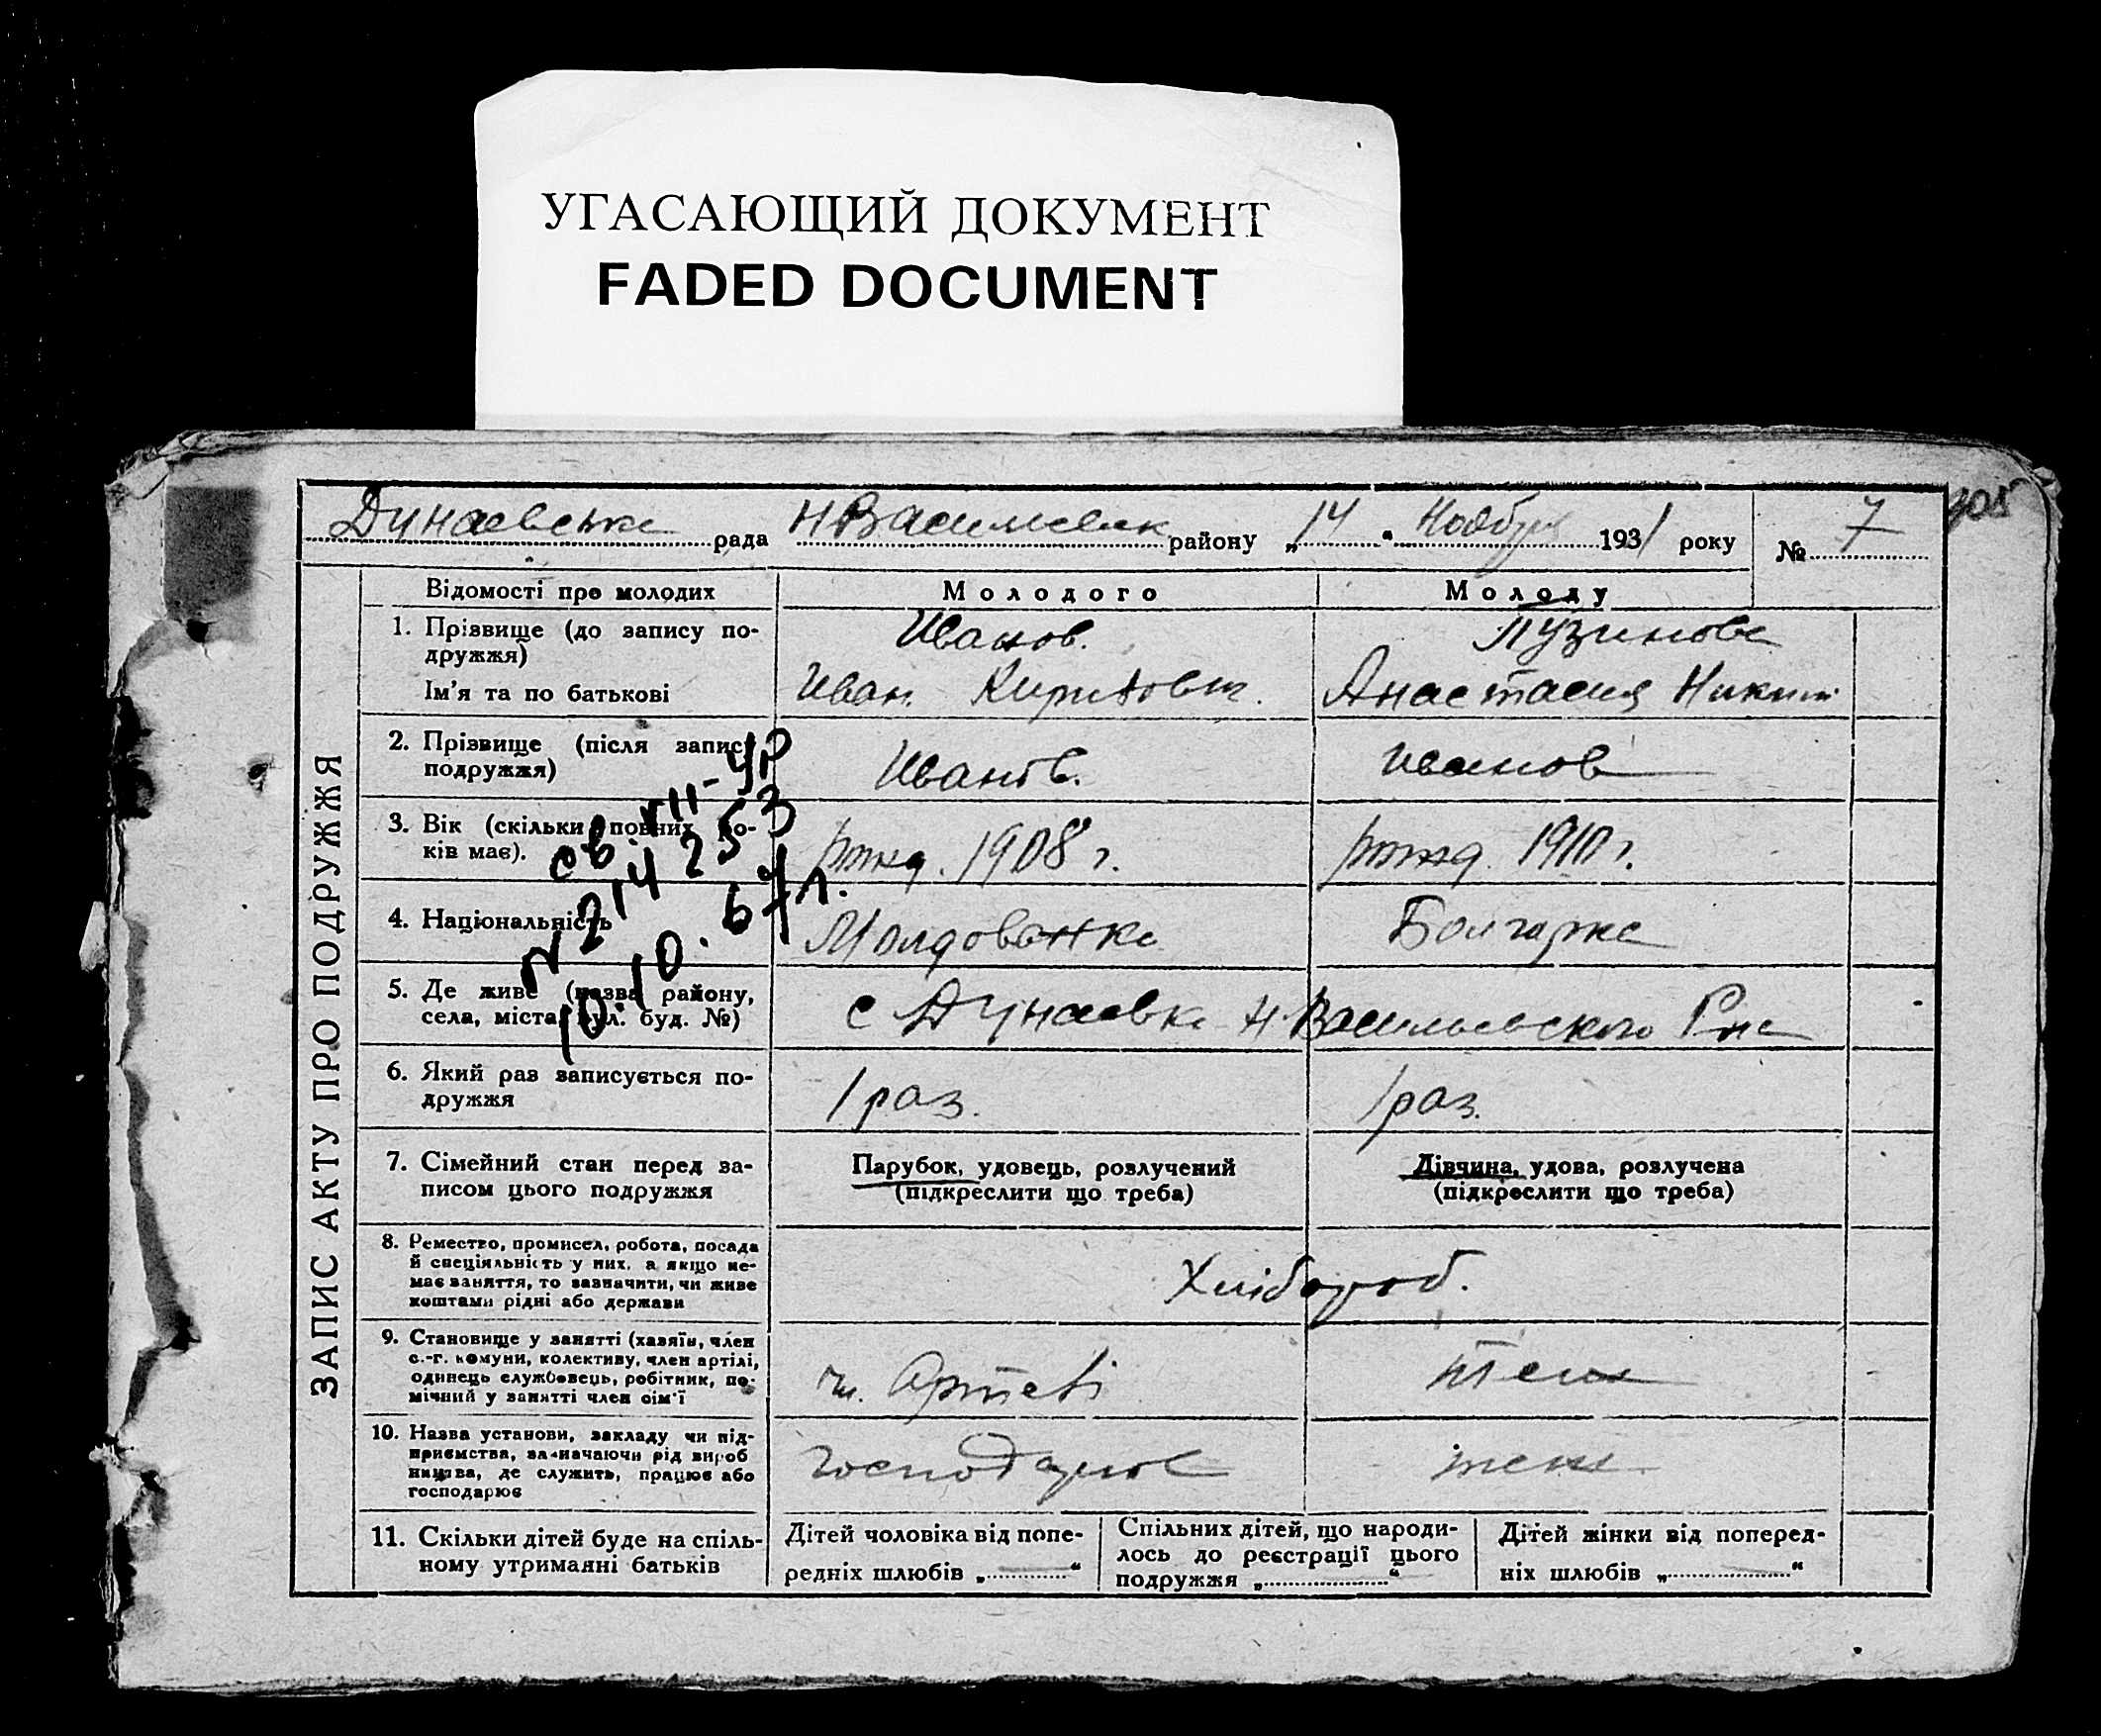 УГАСАЮЩИЙ ДОКУМЕНТ
FADED DOCUMENT
305
Дунаевська рада НВасильевск району „14“ Ноября 1931 року № 7
ЗАПИС АКТУ ПРО ПОДРУЖЖЯ
Відомості про молодих Молодого Молоду
1. Прізвище (до запису по-
дружжя)
Иванов. Пузинова
Ім'я та по батькові Иван. Анастасия Никит
2. Прізвище (після запису
подружжя)
Иванов. Иванов
3. Вік (скільки повних ро-
ків має).
рожд. 1908 г. рожд. 1910 г.
4. Національність Молдованка Болгарка
5. Де живе (назва району,
села, міста, вул. буд. №)
с Дунаевка Н Васильевского Рна
6. Який раз записується по-
дружжя
1 раз. 1 раз.
7. Сімейний стан перед за-
писом цього подружжя
Парубок, удовець, розлучений
(підкреслити що треба)
Дівчина, удова, розлучена
(підкреслити що треба)
8. Ремество, промисел, робота, посада
й спеціяльність у них, а якщо не-
має заняття, то зазначити, чи живе
коштами рідні або держави
Хлібороб.
9. Становище у занятті (хазяїн, член
с.-г. комуни, колективу, член артілі,
одинець службовець, робітник, по-
мічний у занятті член сім'ї
чл. Артелі теж
10. Назва установи, закладу чи під-
приємства, зазначаючи рід вироб
ництва, де служить, працює або
господарює
господарює теж
11. Скільки дітей буде на спіль-
ному утриманні батьків
Дітей чоловіка від попе-
редніх шлюбів „ “
Спільних дітей, що народи-
лось до реєстрації цього
подружжя „ “
Дітей жінки від поперед-
ніх шлюбів „ “
св. VII-УР
N 214253
10.10.67 г.